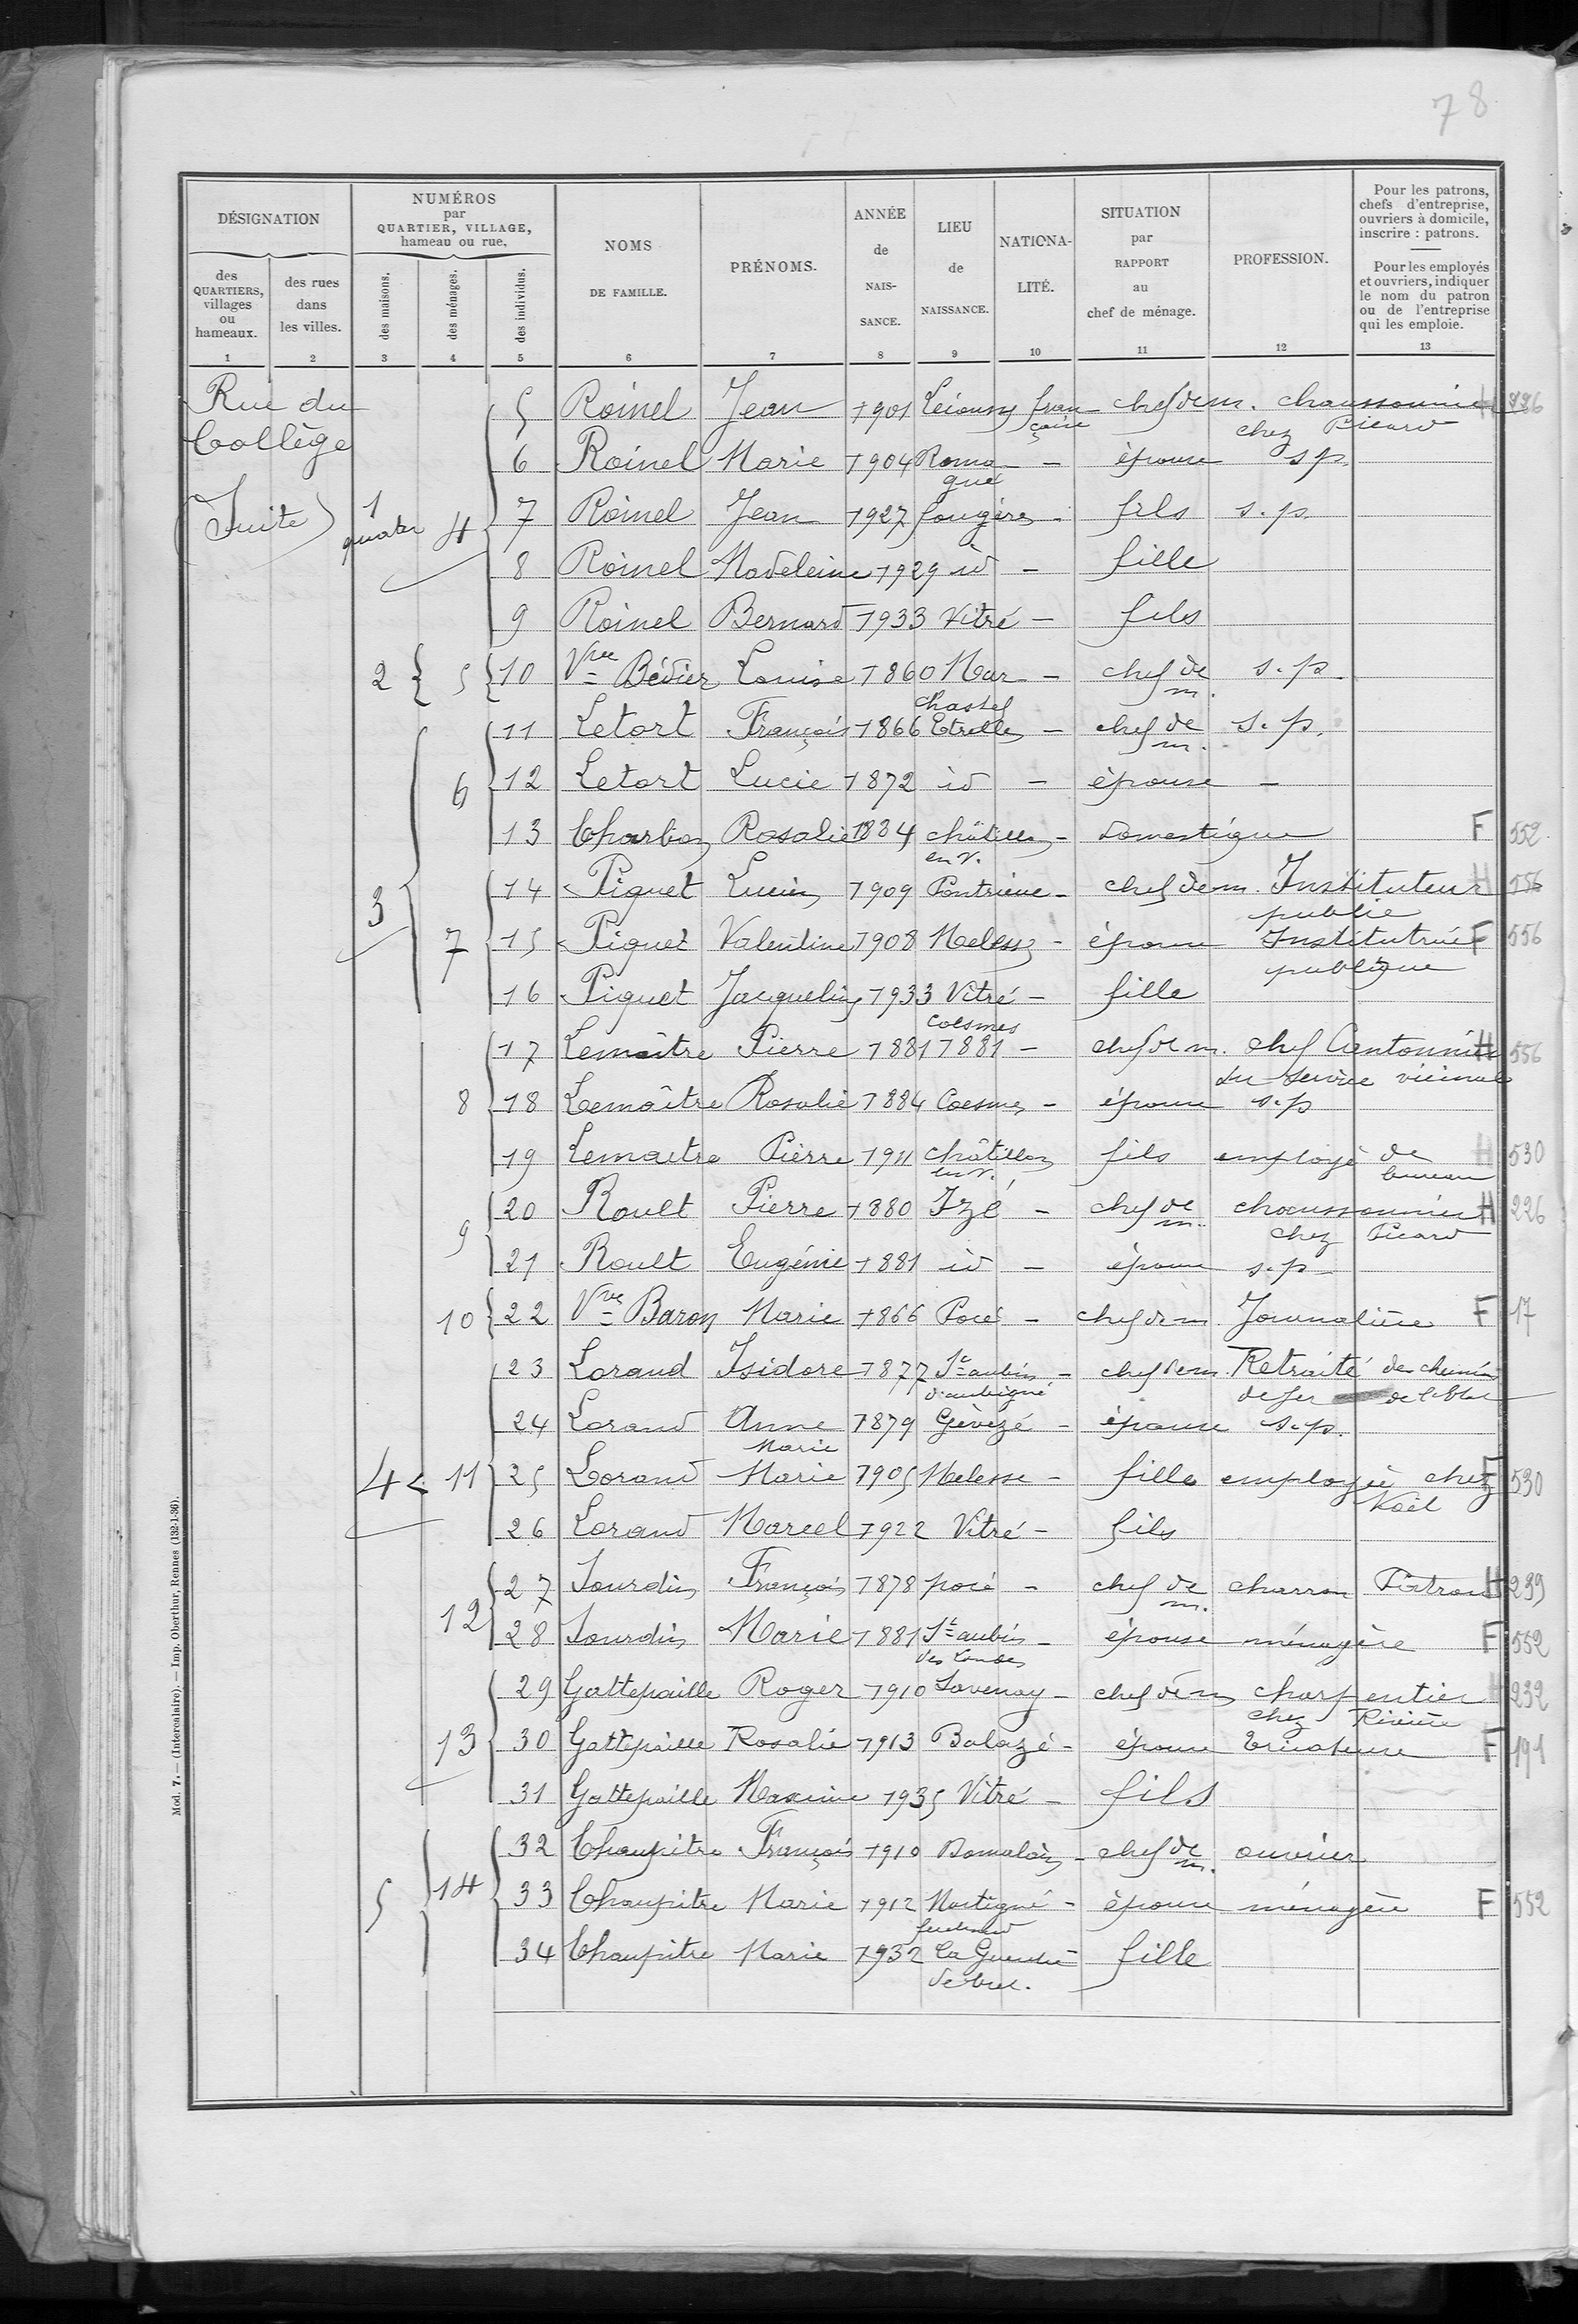 78
DÉSIGNATION
NUMÉROS
par
QUARTIER, VILLAGE,
hameau ou rue.
des
QUARTIERS,
villages
ou
hameaux.
des rues
dans
les villes.
des maisons.
des ménages.
des individus.
NOMS
DE FAMILLE.
PRÉNOMS.
ANNÉE
de
NAIS-
SANCE.
LIEU
de
NAISSANCE.
NATIONA-
LITÉ.
SITUATION
par
RAPPORT
au
chef de ménage.
PROFESSION.
Pour les patrons,
chefs d'entreprise,
ouvriers à domicile,
inscrire : patrons.
Pour les employés
et ouvriers, indiquer
le nom du patron
ou de l'entreprise
qui les emploie.
1 2 3 4 5 6 7 8 9 10 11 12 13
Rue du
Collège
(Suite)
1 quater 4
5 Roinel Jean 1901 fran çaise chef de m. chaussonnier H 226
chez Picard
6 Roinel Marie 1904 Roma - épouse s.p.
gné
7 Roinel Jean 1927 fougères - fils s.p.
8 Roinel Madeleine 1929 id - fille
9 Roinel Bernard 1933 Vitré - fils
2 5 10 Vve Bédier Louise 1860 Mar - chef de m. s.p.
chastel
3 6 11 Letort François 1866 Etrelles - chef de m. s.p.
12 Letort Lucie 1872 id - épouse -
13 Charbon Rosalie 1884 châtillon - domestique F 552
en V.
7 14 Piquet Lucien 1909 Pontrieux - chef de m. Instituteur H 556
public
15 Piquet Valentine 1908 Melesse - épouse Institutrice F 556
publique
16 Piquet Jacqueline 1933 Vitré - fille
Coesmes
8 17 Lemaître Pierre 1881 1881 - chef de m. chef Cantonnier H 556
du service vicinal
18 Lemaître Rosalie 1884 Coesmes - épouse s.p
19 Lemaitre Pierre 1911 châtillon fils employé de H 530
en V. bureau
9 20 Roult Pierre 1880 Izé - chef de m. chaussonnier H 226
chez Picard
21 Roult Eugénie 1881 id - épouse s.p -
10 22 Vve Baron Marie 1866 Pocé - chef de m. Journalière F 17
4 11 23 Lorand Isidore 1877 St aubin - chef de m. Retraité des chemins
d'aubigné de fer de l'Etat
24 Lorand Anne 1879 Gévezé - épouse s.p.
Marie
25 Lorand Marie 1905 Melesse - fille employée chez F 530
Noël
26 Lorand Marcel 1922 Vitré - fils
12 27 Jourdin François 1878 pocé - chef de m. charron Patron H 239
28 Jourdin Marie 1881 St aubin - épouse ménagère F 552
des Landes
13 29 Gattepaille Roger 1910 Savenay - chef de m charpentier H 232
chez Rivière
30 Gattepaille Rosalie 1913 Balazé - épouse tricoteuse F 191
31 Gattepaille Maxime 1935 Vitré - fils
5 14 32 Chaupitre François 1910 Domalain - chef de m. ouvrier
33 Chaupitre Marie 1912 Martigné - épouse ménagère F 552
ferchaud
34 Chaupitre Marie 1932 La Guerche - fille
de bret.
Mod. 7. — (Intercalaire). — Imp. Oberthur, Rennes (132-1-36).